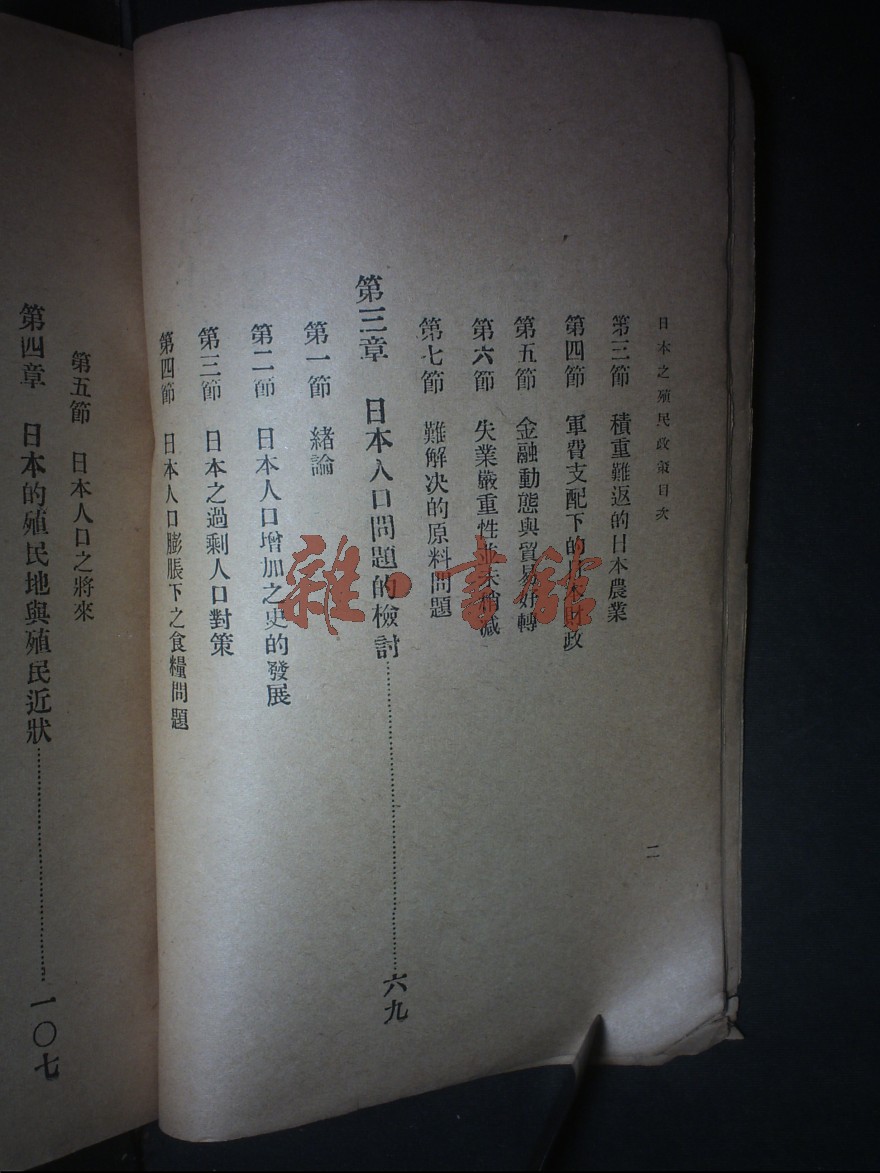 日本之殖民政策目次
第三節 積重難返的日本農業
第四節 軍費支配下的日本財政
第五節 金融動態與貿易好轉
第六節 失業嚴重性並未稍減
第七節 難解決的原料問題
第三章 日本人口問題的檢討 六九
第一節 緒論
第二節 日本人口增加之史的發展
第三節 日本之過剩人口對策
第四節 日本人口膨脹下之食糧問題
二
第五節 日本人口之將來
第四章 日本的殖民地與殖民近狀 一〇七
雜·書館